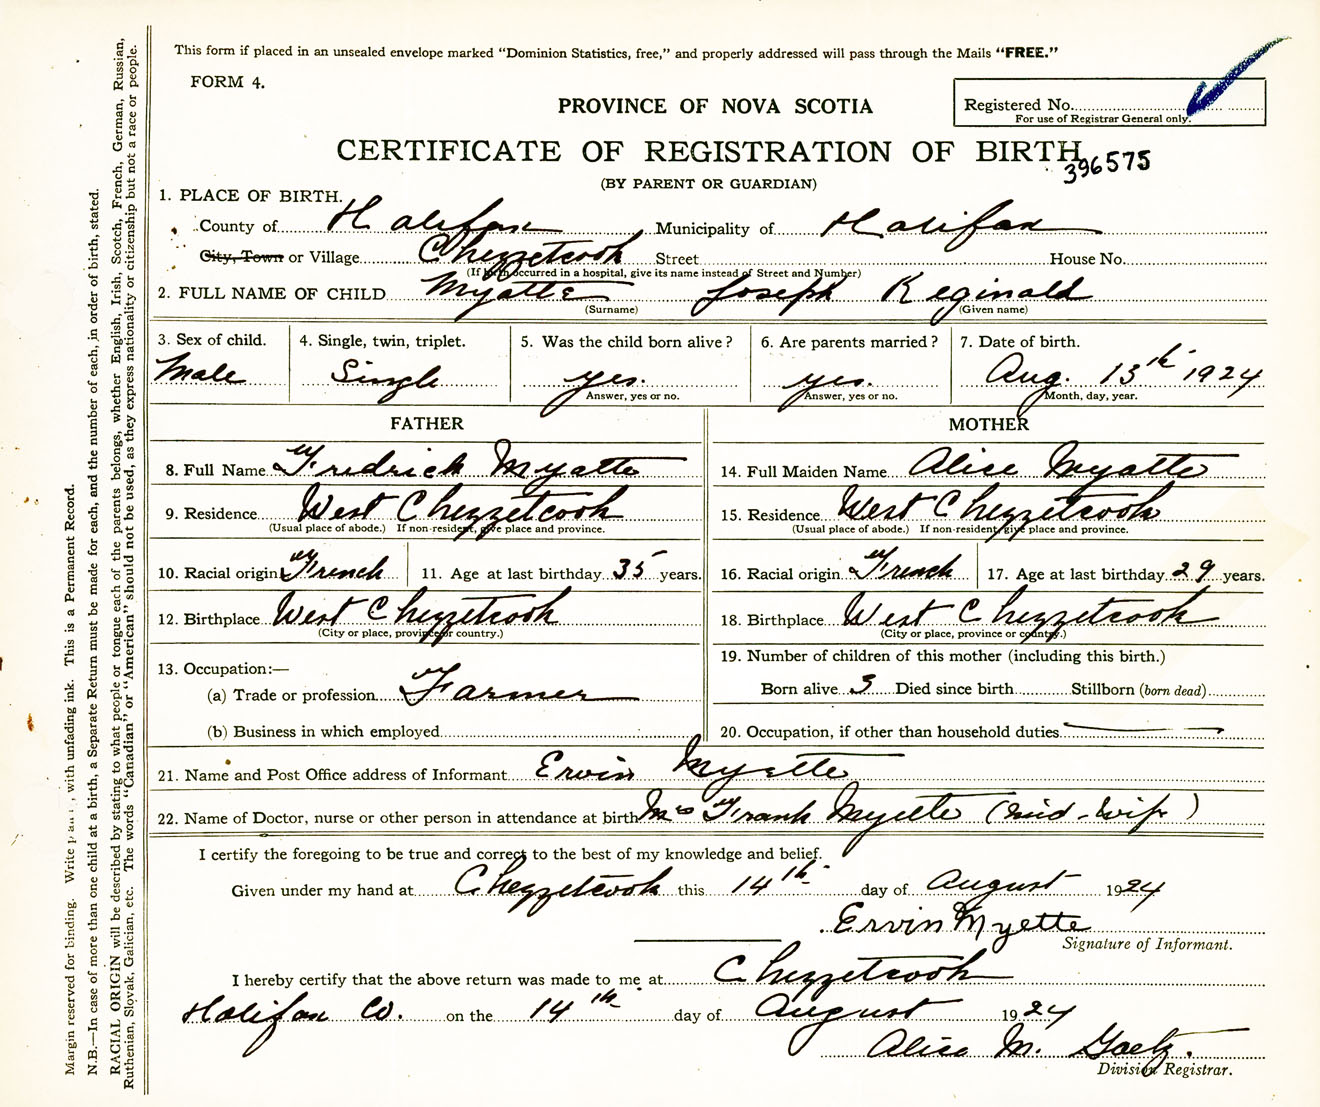 This form if placed in an unsealed envelope marked "Dominion Statistics, free," and properly addressed will pass through the Mails "FREE."
FORM 4.
PROVINCE OF NOVA SCOTIA
Registered No.
For use of Registrar General only.
CERTIFICATE OF REGISTRATION OF BIRTH
396575
(BY PARENT OR GUARDIAN)
1. PLACE OF BIRTH.
County of Halifax Municipality of Halifax
City, Town or Village Chezzetcook Street House No.
(If birth occurred in a hospital, give its name instead of Street and Number)
2. FULL NAME OF CHILD Myatte Joseph Reginald
(Surname) (Given name)
3. Sex of child. 4. Single, twin, triplet. 5. Was the child born alive? 6. Are parents married? 7. Date of birth.
Male Single yes. yes. Aug. 13th 1924
Answer, yes or no. Answer, yes or no. Month, day, year.
FATHER MOTHER
8. Full Name Fredrick Myatte 14. Full Maiden Name Alice Myatte
9. Residence West Chezzetcook 15. Residence West Chezzetcook
(Usual place of abode.) If non-resident, give place and province. (Usual place of abode.) If non-resident give place and province.
10. Racial origin French 11. Age at last birthday 35 years. 16. Racial origin French 17. Age at last birthday 29 years.
12. Birthplace West Chezzetcook 18. Birthplace West Chezzetcook
(City or place, province or country.) (City or place, province or country.)
13. Occupation:— 19. Number of children of this mother (including this birth.)
(a) Trade or profession Farmer Born alive 3 Died since birth Stillborn (born dead)
(b) Business in which employed 20. Occupation, if other than household duties
21. Name and Post Office address of Informant Ervin Myette
22. Name of Doctor, nurse or other person in attendance at birth Mrs Frank Myette (mid-wife)
I certify the foregoing to be true and correct to the best of my knowledge and belief.
Given under my hand at Chezzetcook this 14th day of August 1924
Ervin Myette
Signature of Informant.
I hereby certify that the above return was made to me at Chezzetcook
Halifax Co. on the 14th day of August 1924
Alice M. Gaetz.
Division Registrar.
Margin reserved for binding. Write , with unfading ink. This is a Permanent Record.
N.B.—In case of more than one child at a birth, a Separate Return must be made for each, and the number of each, in order of birth, stated.
RACIAL ORIGIN will be described by stating to what people or tongue each of the parents belongs, whether English, Irish, Scotch, French, German, Russian,
Ruthenian, Slovak, Galician, etc. The words "Canadian" or "American" should not be used, as they express nationality or citizenship but not a race or people.